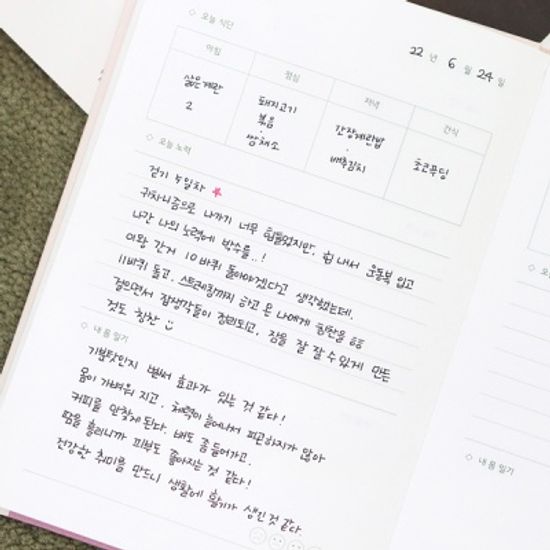 ◇ 오늘 식단
22 년 6 월 24 일
아침 점심 저녁 간식
삶은계란 2
돼지고기 볶음 · 쌈채소
간장계란밥 · 배추김치
초코푸딩
◇ 오늘 노력
걷기 4일차
귀차니즘으로 나가기 너무 힘들었지만, 힘 내서 운동복 입고
나간 나의 노력에 박수를..!
이왕 간거 10바퀴 돌아야겠다고 생각했는데,
11바퀴 돌고, 스트레칭까지 하고 온 나에게 칭찬을
걸으면서 잡생각들이 정리되고, 잠을 잘 잘 수 있게 만든
것도 칭찬
◇ 내 몸 일기
기분탓인지 벌써 효과가 있는 것 같다!
몸이 가벼워 지고, 체력이 늘어나서 피곤하지가 않아
커피를 안찾게 된다. 배도 좀 들어가고,
땀을 흘리니까 피부도 좋아지는 것 같다!
건강한 취미를 만드니 생활에 활기가 생긴 것 같다.
◇ 오늘
◇ 내 몸 일기